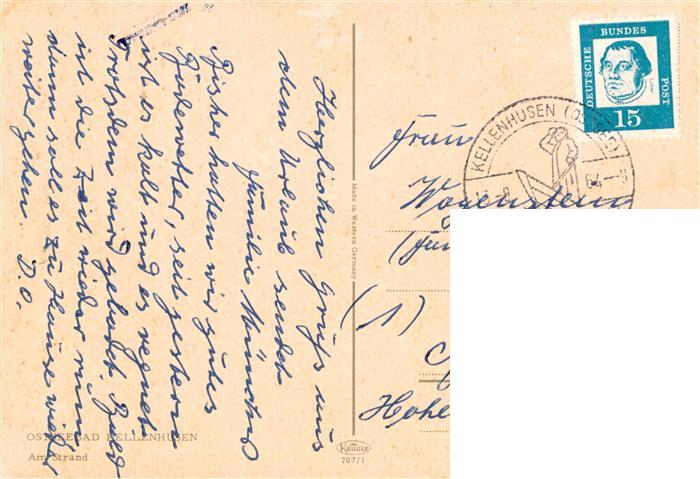 Herzlichen Gruß aus
dem Urlaub sendet
Familie
Bisher hatten wir gutes
Badewetter, seit gestern
ist es kalt und es regnet.
Trotzdem wird gebadet. Bald
ist die Zeit wieder rum
dann soll es zu Hause wieder
weiter gehen. D.O.
OSTSEEBAD KELLENHUSEN
Am Strand
Made in Western Germany
KRÜGER
707/1
DEUTSCHE BUNDES POST
15
KELLENHUSEN (OSTSEE)
64
Frau
(1)
Hohe